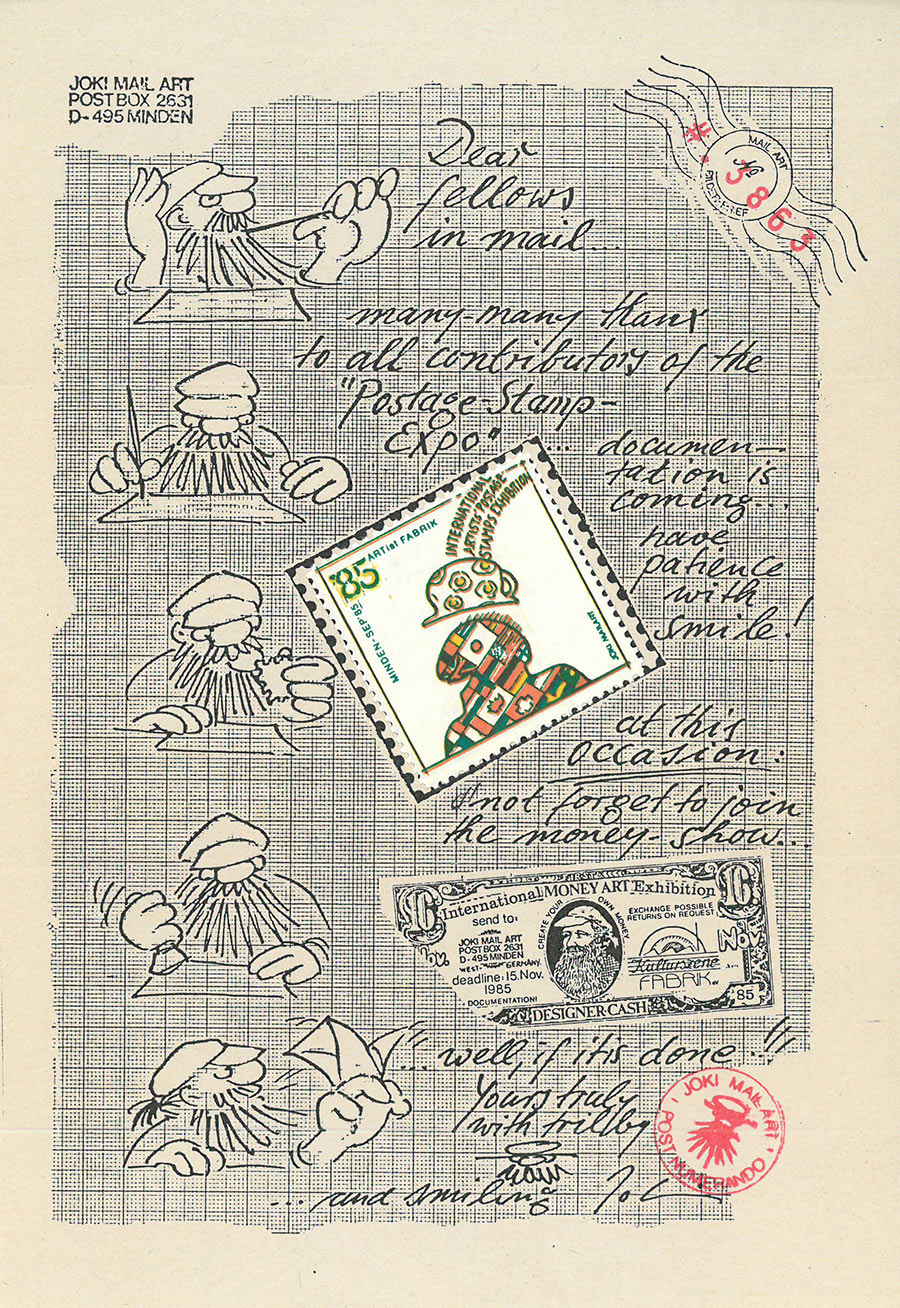 JOKI MAIL ART
POST BOX 2631
D-495 MINDEN
MAIL ART
№
#. 3863
Dear
fellows
in mail...
many-many thanx
to all contributors of the
"Postage-Stamp-
Expo" ...
documen-
tation is
coming...
have
patience
with
smile!
INTERNATIONAL
ARTISTS' POSTAGE
STAMPS EXHIBITION
ARTist FABRIK
'85
MINDEN-SEP'85
JOKI MAILART
at this
occasion:
d'not forget to join
the money-show...
FIRST
International MONEY ART Exhibition
send to:
JOKI MAIL ART
POST BOX 2631
D-495 MINDEN
WEST-GERMANY.
deadline: 15.Nov.
1985
DOCUMENTATION!
CREATE YOUR OWN MONEY
EXCHANGE POSSIBLE
RETURNS ON REQUEST
Nov.
Nov.
Kulturszene
FABRIK
85
DESIGNER-CASH
... well, if it is done...!!!
Yours truly
with trillby
JOKI MAIL ART
POST NUMERANDO
... and smiling